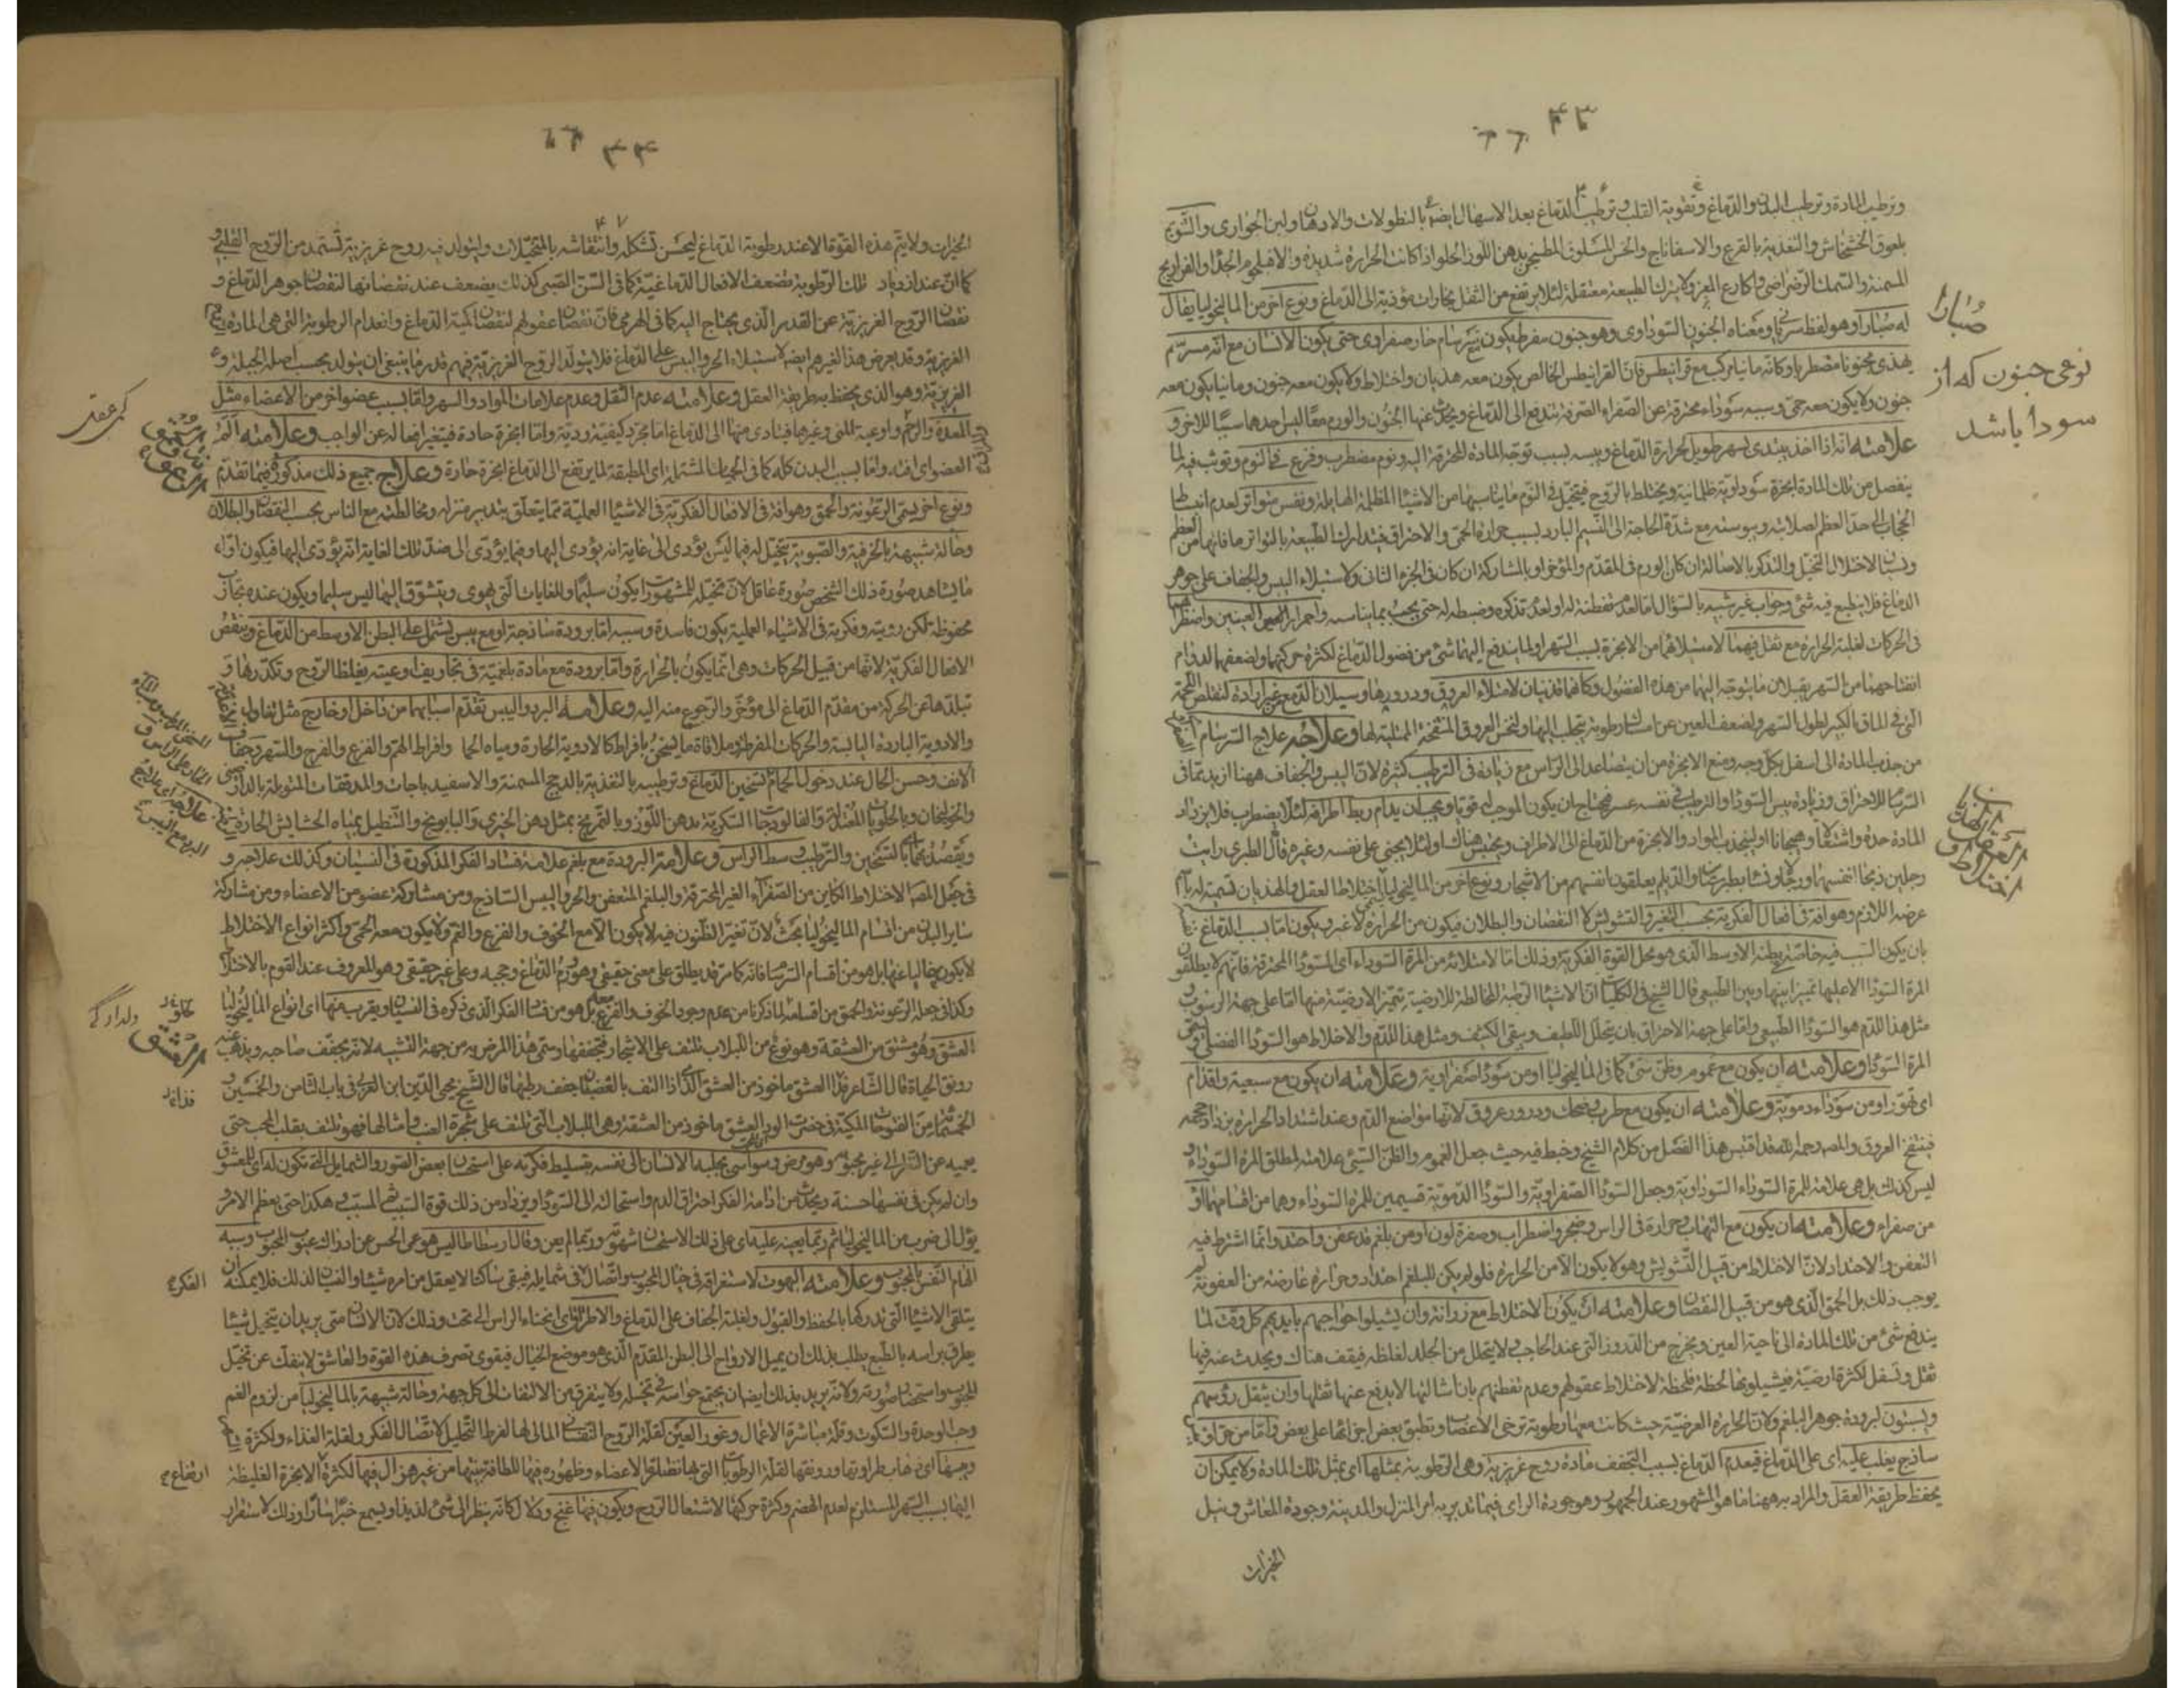 وترطيب المادة وترطيب البدن والدماغ وتقوية القلب وترطيب الدماغ بعد الاسهال ايضا بالنطولات والادهان ولبن الجواري والتنويم
بلعوق الخشخاش والتغذية بالقرع والاسفاناج والخس المسلوق المطبخ بدهن اللوز الحلو اذا كانت الحرارة شديدة والا فبلحوم الجدا والفراريج
المسمنة والسمك الرضراضي واكارع المعز ولا يترك الطبيعة معتقلة لئلا يرتفع من الثفل بخارات مؤذية الى الدماغ ونوع اخر من الماليخوليا يقال
له صبارا وهو لفظ سرياني ومعناه الجنون السوداوي وهو جنون مفرط يكون مع سرسام حار صفراوي حتى يكون الانسان مع انه مسرسم
يهذي مجنونا مضطربا وكانه مانيا مركب مع قرانيطس فان القرانيطس الخالص يكون معه هذيان واختلاط ولا يكون معه جنون ومانيا يكون معه
جنون ولا يكون معه حمى وسببه سوداء محترقة عن الصفراء الصرفة تندفع الى الدماغ ويحدث عنها الجنون والورم معا ليس احدهما سببا للاخر و
علامته انه اذا اخذ يبتدي سهر طويل لحرارة الدماغ ويبسه بسبب توجه المادة المحترقة اليه ونوم مضطرب وفزع في النوم وتوثب فيه لما
ينفصل من تلك المادة ابخرة سوداوية ظلمانية ويختلط بالروح فيتخيل في النوم ما يناسبها من الاشياء المظلمة الهايلة ونفس متواتر لعدم انبساط
الحجاب الى حد العظم لصلابته ويبوسته مع شدة الحاجة الى النسيم البارد لسبب حرارة الحمى والاحتراق فيتدارك الطبيعة بالتواتر ما فاتها من العظم
ونسيان لاختلال التخيل والتذكر بالاصالة ان كان الورم في المقدم والمؤخر او بالمشاركة ان كان في الجزء الثاني ولاستيلاء اليبس والجفاف على جوهر
الدماغ فلا ينطبع فيه شيء وجواب غير شبيه بالسؤال اما لعدم تفطنه له او لعدم تذكره وضبطه له حتى يجيب بما يناسبه واحمرار العينين واضطرابهما
في الحركات لغلبة الحرارة مع ثقل فيهما لامتلائهما من الابخرة بسبب السهر ولما يندفع اليهما شيء من فضول الدماغ لكثرة حركتهما ولضعفهما لدوام
انفتاحهما من السهر يقبلان ما يتوجه اليهما من هذه الفضول وكانهما قذيان لامتلاء العروق ودرورها وسيلان الدمع غير ارادة لتقلص اللحمة
التي في الماق الكبر لطول السهر ولضعف العين عن امساك رطوبة يتحلب اليها ولنخس العروق المنتفخة الممتلئة لها وعلاجه علاج السرسام
من جذب المادة الى اسفل بكل وجه ومنع الابخرة من ان يتصاعد الى الراس مع زيادة في الترطيب كثيرة لان اليبس والجفاف ههنا ازيد مما في
السرسام للاحتراق وزيادة يبس السوداء والترطيب في نفسه عسر فيحتاج ان يكون الموجب له قويا ويجب ان يدام ربط اطرافه لئلا يضطرب فلا يزداد
المادة حدة واشتعالا وهيجانا او لينجذب المواد والابخرة من الدماغ الى الاطراف ويحتبس هناك او لئلا يجني على نفسه وغيره قال الطبري رايت
رجلين ذبحا انفسهما ورجالا ونساء بطبرستان والديلم يعلقون انفسهم من الاشجار ونوع اخر من الماليخوليا يسمى اختلاط العقل والهذيان تسمية له باسم
عرضه اللازم وهو افة في افعال الفكرية بحسب التغير والتشويش لا النقصان والبطلان فيكون من الحرارة لا غير ويكون اما بسبب الدماغ
بان يكون السبب فيه خاصة بطنه الاوسط الذي هو محل القوة الفكرية وذلك اما لامتلائه من المرة السوداء اي السوداء المحترقة فانهم لا يطلقون
المرة السوداء الا عليها تميزا بينها وبين الطبيعي قال الشيخ في الكليات ان الاشياء الرطبة المخالطة للارضية يتميز الارضية منها اما على جهة الرسوب و
مثل هذا للدم هو السوداء الطبيعي واما على جهة الاحتراق بان يتحلل اللطيف ويبقى الكثيف ومثل هذا للدم والاخلاط هو السوداء الفضلي يسمى
المرة السوداء وعلامته ان يكون مع غموم وظن سيئ كما في الماليخوليا او من سوداء صفراوية وعلامته ان يكون مع سبعية واقدام
اي تهور او من سوداء دموية وعلامته ان يكون مع طرب وضحك ودرور عروق لانها مواضع الدم وعند اشتداد الحرارة يزداد حجمه
فينتفخ العروق والمص رحمه الله قد اقتبس هذا الفصل من كلام الشيخ وخبط فيه حيث جعل الغموم والظن السيئ علامة لمطلق المرة السوداء و
ليس كذلك بل هي علامة للمرة السوداء السوداوية وجعل السوداء الصفراوية والسوداء الدموية قسيمين للمرة السوداء وهما من اقسامها او
من صفراء وعلامته ان يكون مع التهاب وحرارة في الراس وضجر واضطراب وصفرة لون او من بلغم قد عفن واحتد وانما اشترط فيه
التعفن والاحتداد لان الاختلاط من قبيل التشويش وهو لا يكون الا من الحرارة فلو لم يكن للبلغم احتداد وحرارة عارضة من العفونة لم
يوجب ذلك بل الحمق الذي هو من قبيل النقصان وعلامته ان يكون الاختلاط مع رزانة وان يشيلوا حواجبهم بايديهم كل وقت لما
يندفع شيء من تلك المادة الى ناحية العين ويخرج من الدروز التي عند الحاجب لا يتحلل من الجلد لغلظه فيقف هناك ويحدث عنه فيها
ثقل وتسفل لكثرة ارضيته فيشيلونها لحظة فلحظة لاختلاط عقولهم وعدم تفطنهم بان اشالتها لا يدفع عنها ثقلها وان يثقل رؤسهم
ويسبتون لبرودة جوهر البلغم ولان الحرارة العرضية حيث كانت معها رطوبة ترخي الاعصاب ويطبق بعض اجزائها على بعض واما من حر او
ساذج يغلب عليه اي على الدماغ فيعدم الدماغ بسبب التجفيف مادة روح غريزية وهي الرطوبة بمثلها اي بمثل تلك المادة ولا يمكن ان
يحفظ طريقة العقل والمراد به ههنا ما هو المشهور عند الجمهور وهو جودة الراي فيما يدبر به امر المنزل والمدينة وجودة المعاش ونيل
الخيرات
صبارا
نوعى جنون كه از
سودا باشد
الخيرات ولا يتم هذه القوة الا عند رطوبة الدماغ ليحسن تشكله وانتقاشه بالمتخيلات وليتولد فيه روح غريزية تستمد من الروح القلبي و
كما ان عند ازدياد تلك الرطوبة تضعف الافعال الدماغية كما في السن الصبي كذلك يضعف عند نقصانها لنقصان جوهر الدماغ و
نقصان الروح الغريزية عن القدر الذي يحتاج اليه كما في الهرمى فان نقصان عقولهم لنقصان كمية الدماغ وانعدام الرطوبة التي هي المادة للروح
الغريزية وقد يعرض هذا لغيرهم ايضا لاستيلاء الحر واليبس على الدماغ فلا يتولد الروح الغريزية فيهم قدر ما ينبغي ان يتولد بحسب اصل الجبلة و
الغريزية وهو الذي يحفظ به طريقة العقل وعلامته عدم الثقل وعدم علامات المواد والسهر واما بسبب عضو اخر من الاعضاء مثل
المعدة والرحم واوعية المني وغيرها فيتادى منها الى الدماغ اما مجرد كيفية ردية واما ابخرة حادة فيتغير افعاله عن الواجب وعلامته الم
العضو اي افته واما بسبب البدن كله كما في الحميات المشتملة اي المطبقة لما يرتفع الى الدماغ ابخرة حارة وعلاج جميع ذلك مذكور فيما تقدم
ونوع اخر يسمى الرعونة والحمق وهو افة في الافعال الفكرية في الاشياء العملية مما يتعلق بتدبير منزله ومخالطته مع الناس بحسب النقصان والبطلان
وحاله شبيهة بالخرفية والصبوية يتخيل له فيما ليس يؤدي الى غاية انه يؤدي اليها وفيما يؤدي الى ضد تلك الغاية انه يؤدي اليها فيكون اول
ما يشاهد صورة ذلك الشخص صورة عاقل لان تخيله للمشهورات يكون سليما وللغايات التي يهوى ويتشوق اليها ليس سليما ويكون عنده تجارب
محفوظة لكن رويته وفكرته في الاشياء العملية يكون فاسدة وسببه اما برودة ساذجة او مع يبس يشتمل على البطن الاوسط من الدماغ وينقص
الافعال الفكرية لانها من قبيل الحركات وهي انما يكون بالحرارة واما برودة مع مادة بلغمية في تجاويف اوعيته يغلظ الروح وتكدرها و
تبلدها عن الحركة من مقدم الدماغ الى مؤخره والرجوع منه اليه وعلامة البرد واليبس تقدم اسبابهما من داخل او خارج مثل تناول الاغذية
والادوية الباردة اليابسة والحركات المفرطة وملاقاة ما يسخن بافراط كالادوية الحارة ومياه الحما وافراط الهم والفزع والفرح والسهر وجفاف
الانف وحسن الحال عند دخول الحمام لتسخين الدماغ وترطيبه بالتغذية بالدجج المسمنة والاسفيدباجات والمدققات المتوبلة بالدارصيني
والخولنجان وبالحلويات المعتدلة والفالوذجات السكرية بدهن اللوز وبالتمريخ بمثل دهن الخيري والبابونج والتنطيل بمياه الحشايش الحارة
ويقصد بها بالتسخين والترطيب وسط الراس وعلامة البرودة مع بلغم علامة فساد الفكر المذكورة في النسيان وكذلك علاجه و
في جعل المص الاختلاط الكاين من الصفراء الغير المحترقة والبلغم المتعفن والحر واليبس الساذج ومن مشاركة عضو من الاعضاء ومن مشاركة
ساير البدن من اقسام الماليخوليا بحث لان تغير الظنون فيه لا يكون الا مع الخوف والفزع والغم ولا يكون معه الحمى واكثر انواع الاختلاط
لا يكون خاليا عنها بل هو من اقسام السرسام فانه كما مر قد يطلق على معنى حقيقي وهو ورم الدماغ وحجبه وعلى غير حقيقي وهو المعروف عند القوم بالاختلاط
وكذا في جعله الرعونة والحمق من اقسامه لما ذكرنا من عدم وجود الخوف والفزع معه بل هو من فساد الفكر الذي ذكره في النسيان ويقرب منها اي انواع الماليخوليا
العشق وهو مشتق من العشقة وهو نوع من اللبلاب تلتف على الاشجار فتجففها وسمي هذا المرض به من جهة التشبيه لانه يجفف صاحبه ويذهب عنه
رونق الحياة قال الشاعر هذا العشق ماخوذ من العشق الذي اذا التف بالغصن جفف رطبها قال الشيخ محيي الدين ابن العربي في باب الثامن والخمسين و
الخمسمائة من الفتوحات المكية في حضرت الود العشق ماخوذ من العشقة وهي اللبلاب التي تلتف على شجرة العنب وامثالها فهو يلتف بقلب المحب حتى
يعميه عن النظر الى غير محبوبه وهو مرض وسواسي يجلبه الانسان الى نفسه بتسليط فكرته على استحسان بعض الصور والشمايل التي تكون له اي للمعشوق
وان لم يكن في نفسها حسنة ويحدث من ادامة الفكر احتراق الدم واستحالته الى السوداء ويزداد من ذلك قوة السبب ثم المسبب هكذا حتى يعظم الامر و
يؤل الى ضرب من الماليخوليا ثم ربما يعينه عليه اي على ذلك الاستحسان شهوة وربما لم يعن وقال ارسطاطاليس هو عمى الحس عن ادراك عيوب المحبوب وسببه
اهتمام النفس بالمحبوب وعلامته البهوت لاستغراقه في خيال المحبوب واتصال في شمايله فيبقى ساكنا لا يعقل من امره شيئا والنسيان لذلك فلا يمكنه ان
يتلقى الاشياء التي تدركها بالحفظ والقبول ولغلبة الجفاف على الدماغ والاطراق اي انحناء الراس الى تحت وذلك لان الانسان متى يريد ان يتخيل شيئا
يطرق براسه بالطبع يطلب بذلك ان يميل الارواح الى البطن المقدم الذي هو موضع الخيال فيقوى تصرف هذه القوة والعاشق لا ينفك عن تخيل
المحبوب واستحضار صورته ولانه يريد بذلك ايضا ان يجتمع حواسه في تخيله ولا يتفرق من الالتفات الى كل جهة وحالة شبيهة بالماليخوليا من لزوم الغم
وحب الوحدة والسكوت وقلة مباشرة الاعمال وغور العين لقلة الروح النفساني المالي لها لفرط التحليل لاتصال الفكر ولقلة الغذاء ولكثرة
ويبسها اي ذهاب طراوتها ورونقها لقلة الرطوبات التي بها نضارة الاعضاء وظهوره فيها للطافة بنيتها من غير هزال فيها لكثرة الابخرة الغليظة
اليها بسبب السهر المستلزم لعدم الهضم وكثرة حركتها لاشتعال الروح ويكون فيها غنج ودلال كانه ينظر الى شيء لذيذ او يسمع خبرا سارا وذلك لاستقرار
كم عقلى
العشق
الفكرة
ارتفاع